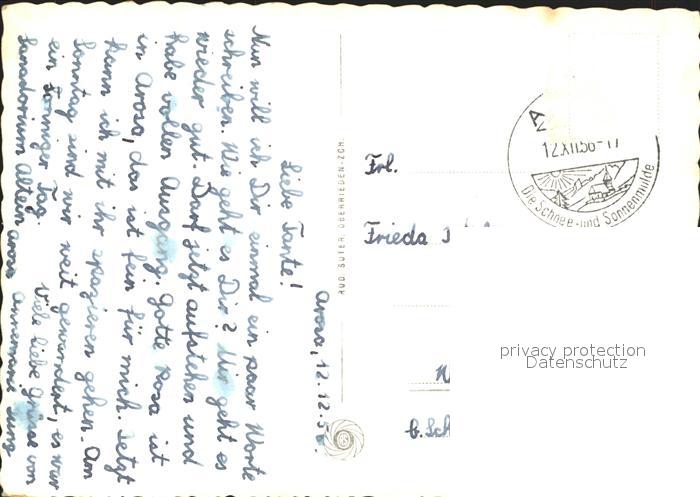 Arosa, 12.12.56.
Liebe Tante!
Nun will ich Dir einmal ein paar Worte
schreiben. Wie geht es Dir? Mir geht es
wieder gut. Darf jetzt aufstehen und
habe vollen Ausgang. Gotte Rosa ist
in Arosa, das ist fein für mich. Jetzt
kann ich mit ihr spazieren gehen. Am
Sonntag sind wir weit gewandert, es war
ein sonniger Tag.
Viele liebe Grüsse von
Sanatorium Altein aus Annemarie
RUD. SUTER, OBERRIEDEN-ZCH.
RS
12.XII.56-17
Die Schnee- und Sonnenmulde
Frl.
Frieda
W
b. Sch
privacy protection
Datenschutz